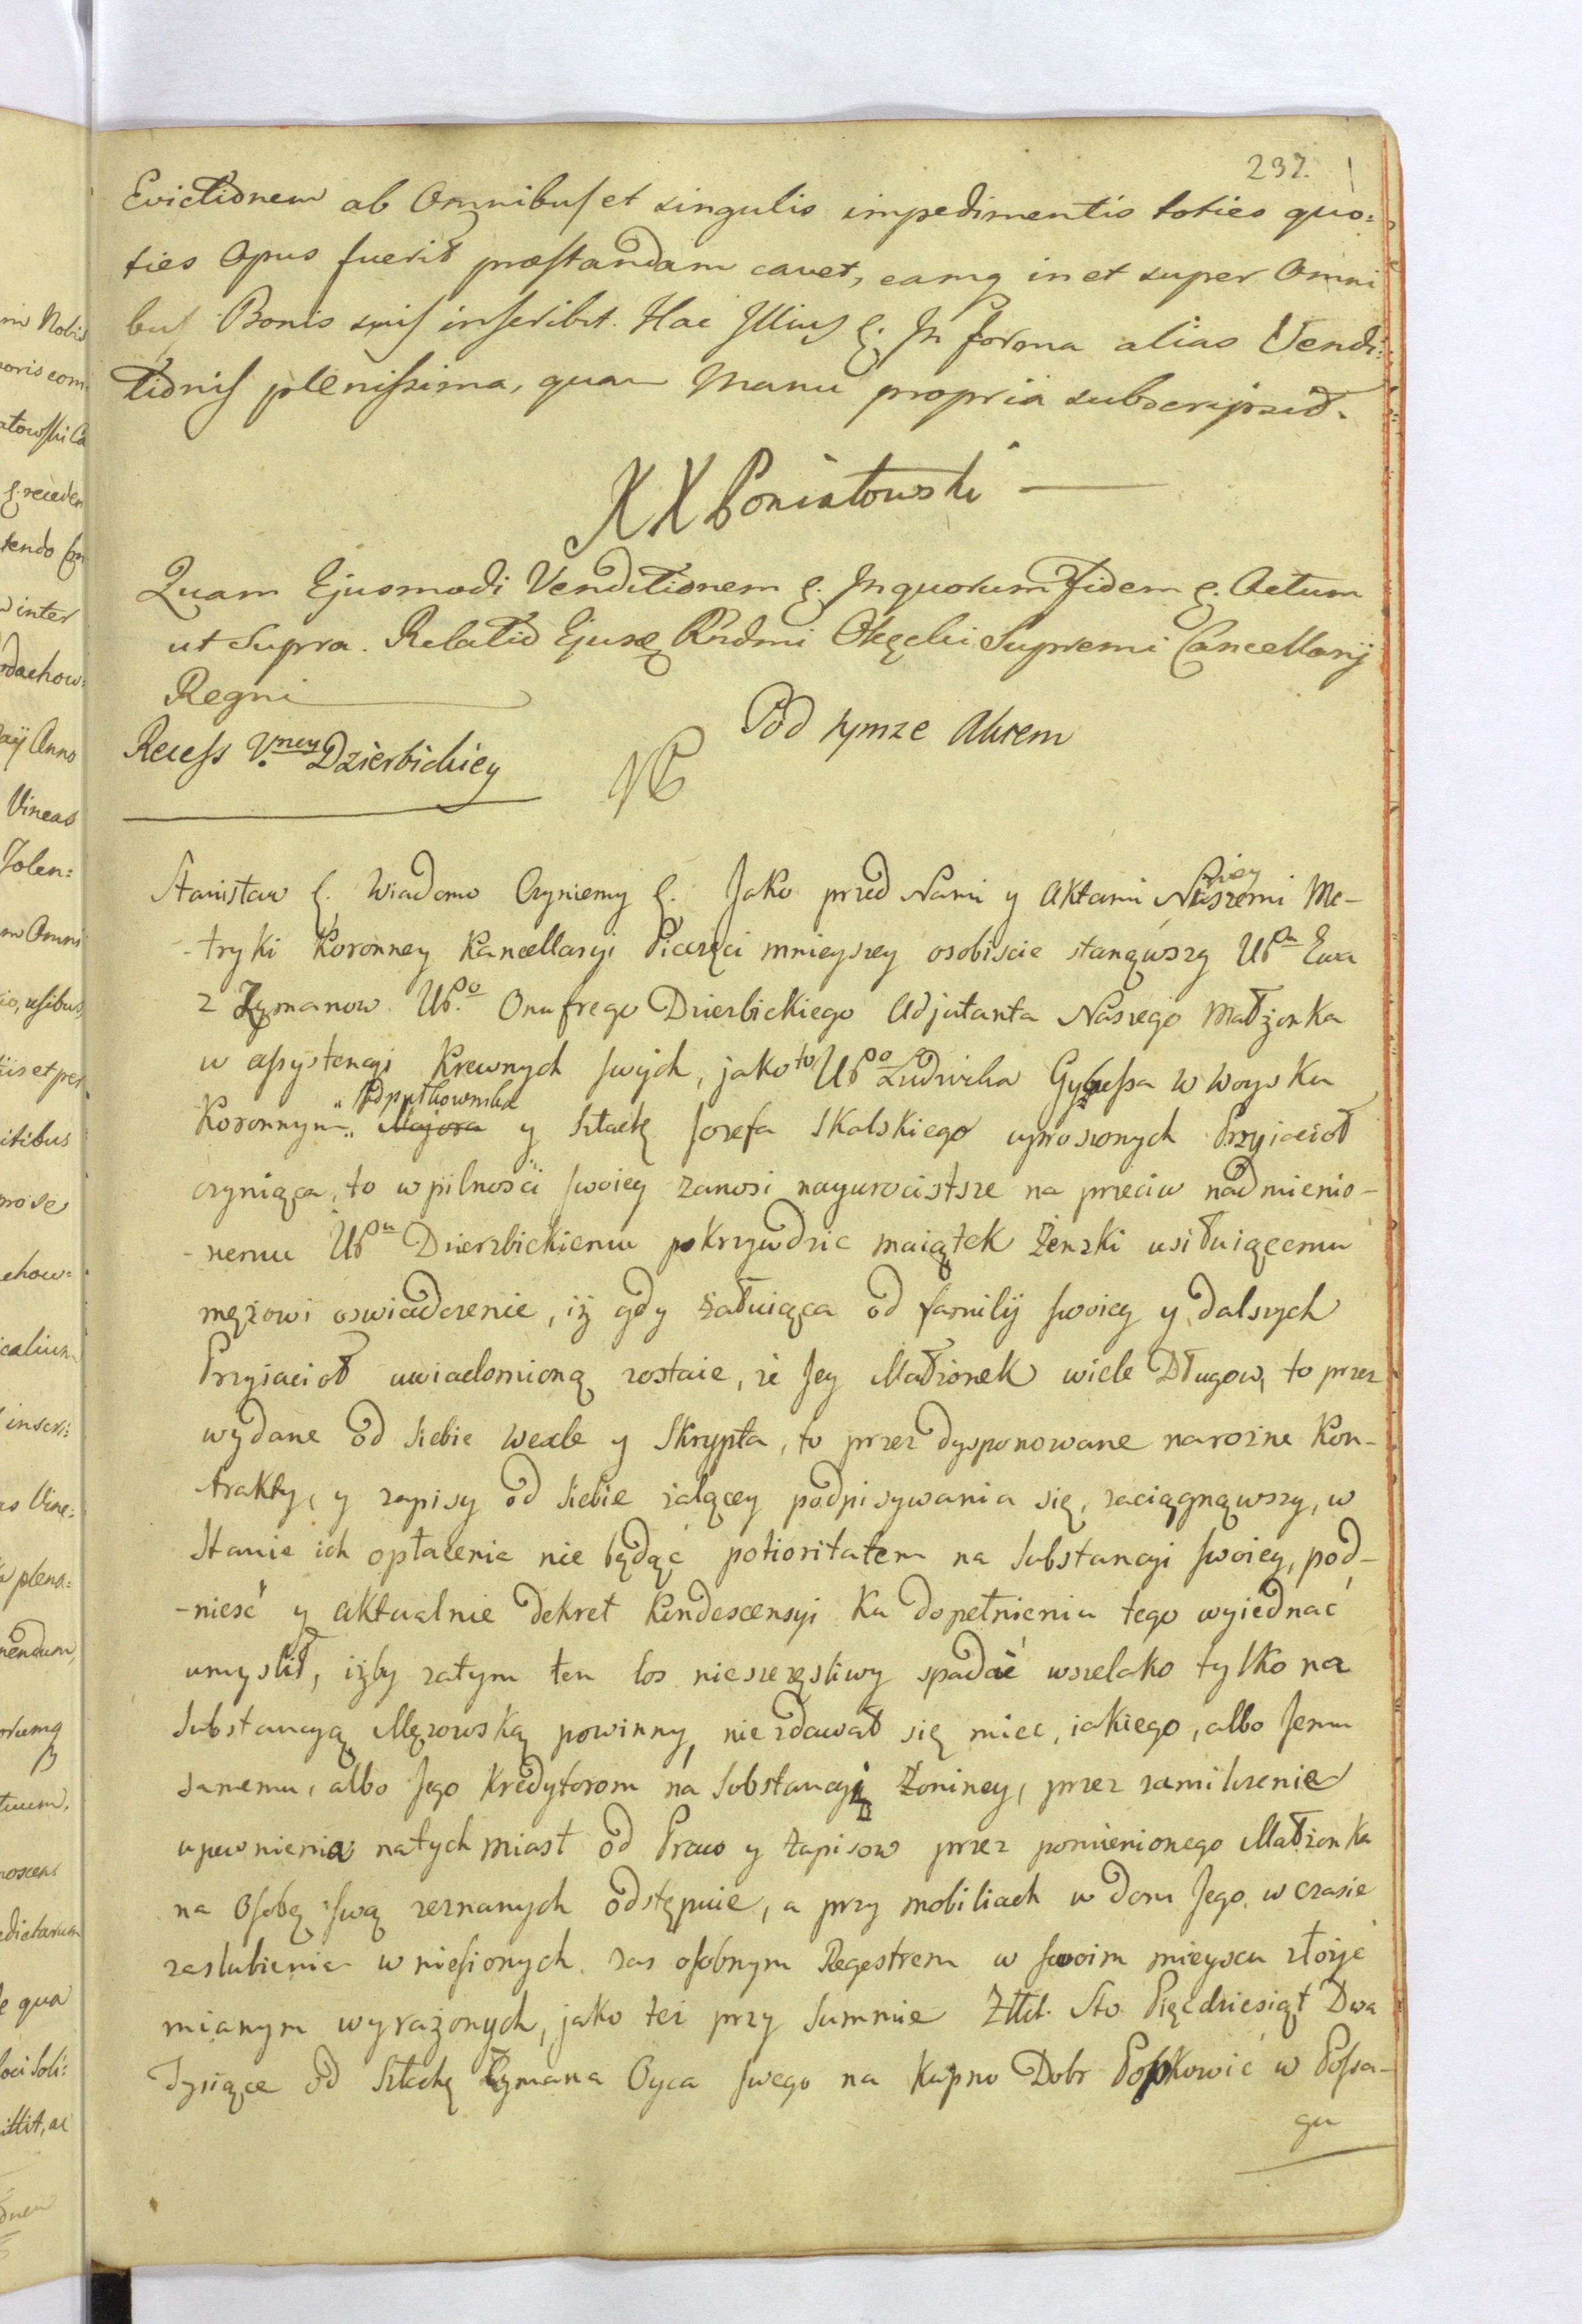 237.
Evictionem ab Omnibus et singulis impedimentis toties quo=
ties Opus fuerit præstandam cavet, eamq in et super Omni
bus Bonis suis inscribit. Hac Illius &. In forma alias Vendi=
tionis plenissima, quam Manu propria subscripsit.
X X Poniatowski
Quam Ejusmodi Venditionem &. In quorum Fidem &. Actum
ut Supra. Relatio Ejusq Rndmi Okęcki Supremi Cancellarij
Regni
Pod tymze Aktem
Recess V.ney Dzierbickiey
Stanisław &. Wiadomo Czyniemy &. Jako przed Nami y Aktami Naszemi Me-
-tryki Koronney Kancellaryi Pieczęci mnieyszey osobiscie stanąwszy Ur Ewa
z Zymanow Ur. Onufrego Dzierbickiego Adjutanta Naszego Małżonka
w assystencyi Krewnych swych, jako to Ur Ludwika w woysku
Koronnym Podpułkownika Majora y Szlachę Jozefa Skalskiego uproszonych Przyiacioł
czyniąca, to w pilności swoiey zanosi nayuroczistsze na przeciw nadmienio-
-nemu Ur Dzierzbickiemu pokrzywdzic maiątek Żenski usiłuiącemu
mężowi oswiadczenie, iż gdy żałuiąca od familij swoiey y dalszych
Przyiacioł uwiadomioną zostaie, że Jey Małżonek wiele Długow, to przez
wydane od siebie wexle y Skrypta, to przez dysponowane narozne Kon-
trakty, y zapisy od siebie żalącey podpisywania się, zaciągnąwszy, w
Stanie ich opłacenia nie będąc potioritatem na Substancyi swoiey, pod-
-niesć y aktualnie dekret Kondescensyi ku dopełnieniu tego wyiednać
umyslił, iżby zatym ten los nieszczęsliwy spadać wszelako tylko na
Substancyą Mężowską powinny, nie zdawał się miec, iakiego, albo Jemu
samemu, albo Jego Kredytorom na Substancyi Żoniney, przez zamilczenie
upewnienia natychmiast od Praw y Zapisow przez pomienionego Małżonka
na Osobę swą zeznanych odstępuie, a przy mobiliach w dom Jego w czasie
zaslubienia wniesionych zas osobnym Regestrem w swoim mieyscu złożyć
mianym wyrażonych, jako też przy Summie Złt. Sto Pięcdziesiąt Dwa
Tysiące od Szlachę Zymana Oyca swego na Kupno Dobr Popkowic w Possa-
gu